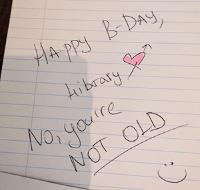 HAPPY B-DAY,
Library
No, you're
NOT OLD